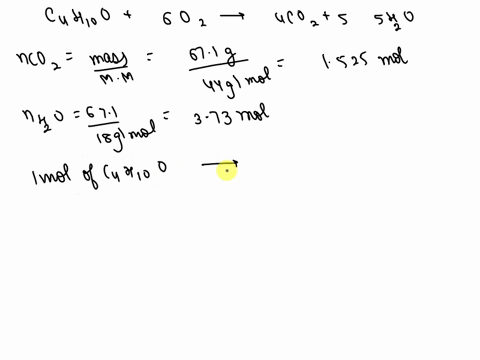 C4H10O + 6O2 → 4CO2 + 5 5H2O
nCO2 = mass/M.M = 67.1 g/44g/mol = 1.525 mol
nH2O = 67.1/18g/mol = 3.73 mol
1 mol of C4H10O →